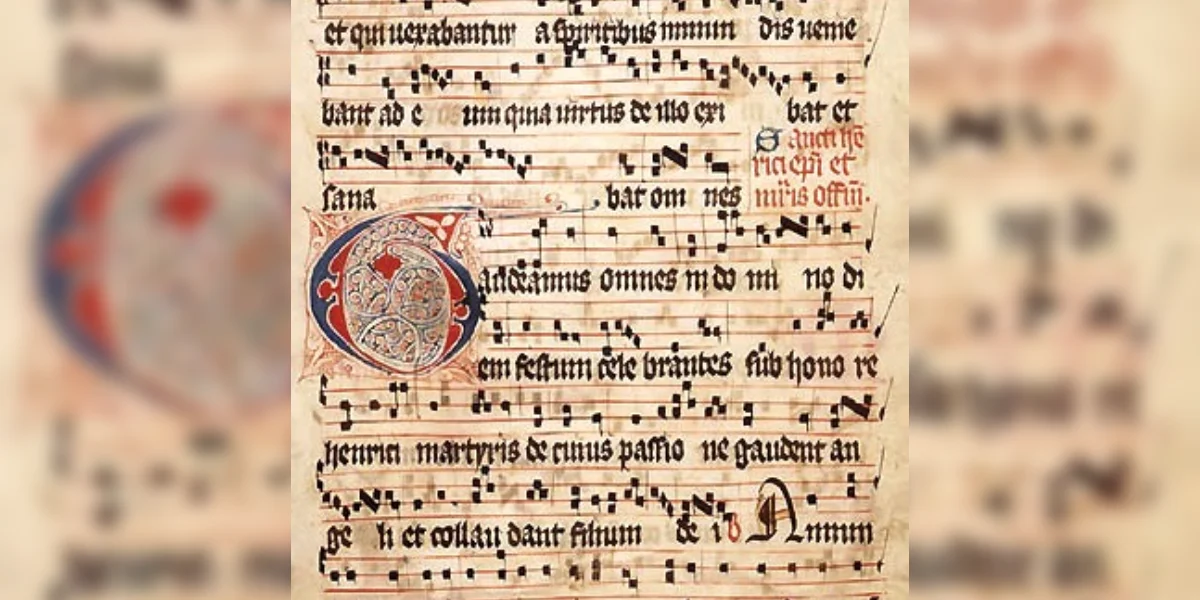 et qui uexabantur a spiritibus inmun dis uenie
bant ad e um quia uirtus de illo exi bat et
sana bat om nes
Sancti hē
rici epi et
mris offm.
Gaudeamus omnes in do mi no di
em festum cele brantes sub hono re
henrici martyris de cuius passio ne gaudent an
ge li et collau dant filium de i
Annun